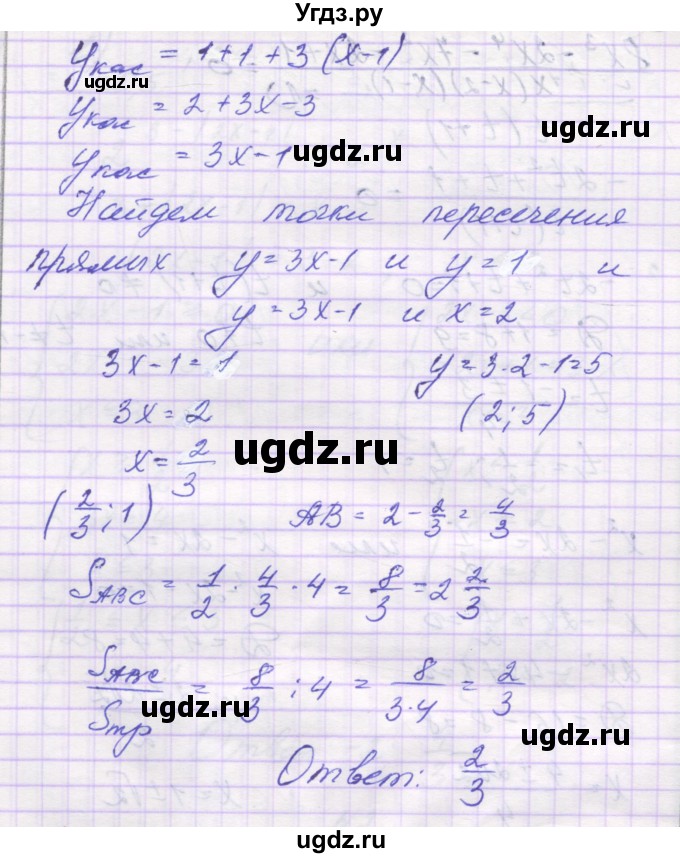 Угдз.ру
yкас = 1+1+3(x-1)
ugdz.ru
yкас = 2+3x-3
ugdz.ru
yкас = 3x-1
ugdz.ru
Найдем точки пересечения
прямых y=3x-1 и y=1 и
y=3x-1 и x=2
3x-1=1 y=3·2-1=5
ugdz.ru
3x=2 (2;5)
x=2/3
ugdz.ru ugdz.ru
(2/3;1) AB=2-2/3=4/3
ugdz.ru
S_ABC = 1/2·4/3·4=8/3=2 2/3
ugdz.ru
S_ABC/Sтр = 8/3:4=8/(3·4)=2/3
ugdz.ru ugdz.ru
Ответ: 2/3
ugdz.ru
ugdz.ru